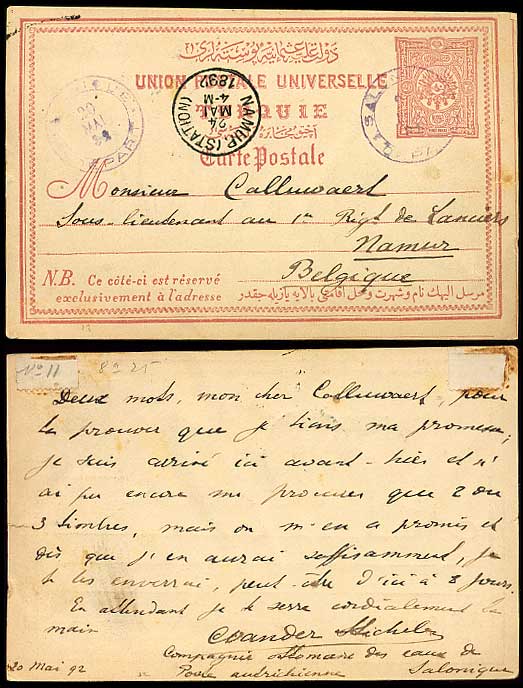 دولت علیه عثمانیه پوسته لری
UNION POSTALE UNIVERSELLE
TURQUIE
NAMUR (STATION)
24
MAI
4-M
1892
DEPART
20
MAI
92
SALON
Carte Postale
Monsieur Calluwaert
Sous-lieutenant au 1er Rigt de Lanciers
Namur
Belgique
N.B. Ce côté-ci est réservé
exclusivement à l'adresse
No 11 8 a 25
Deux mots, mon cher Calluwaert, pour
te prouver que je tiens ma promesse;
je suis arrivé ici avant-hier et n'
ai pu encore me procurer que 2 ou
3 timbres, mais on m'en a promis et
dès que j'en aurai suffisamment, je
te les enverrai, peut-être d'ici à 8 jours.
En attendant je te serre cordialement la
main
Michel
Compagnie ottomane des eaux de
20 Mai 92 Poste autrichienne Salonique